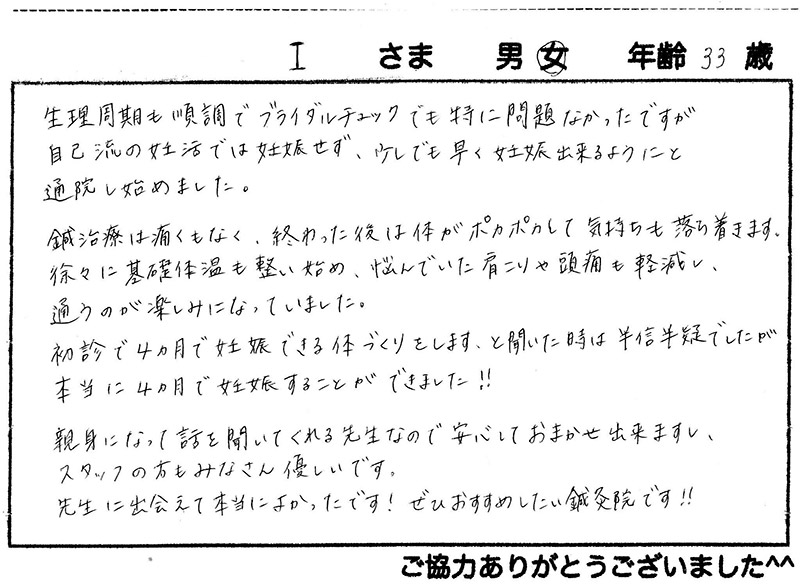 I さま 男 女 年齢 33 歳
生理周期も順調でブライダルチェックでも特に問題なかったですが
自己流の妊活では妊娠せず、少しでも早く妊娠出来るようにと
通院し始めました。
鍼治療は痛くもなく、終わった後は体がポカポカして気持ちも落ち着きます。
徐々に基礎体温も整い始め、悩んでいた肩こりや頭痛も軽減し、
通うのが楽しみになっていました。
初診で4ヵ月で妊娠できる体づくりをします、と聞いた時は半信半疑でしたが
本当に4ヵ月で妊娠することができました!!
親身になって話を聞いてくれる先生なので安心しておまかせ出来ますし、
スタッフの方もみなさん優しいです。
先生に出会えて本当によかったです!ぜひおすすめしたい鍼灸院です!!
ご協力ありがとうございました^^